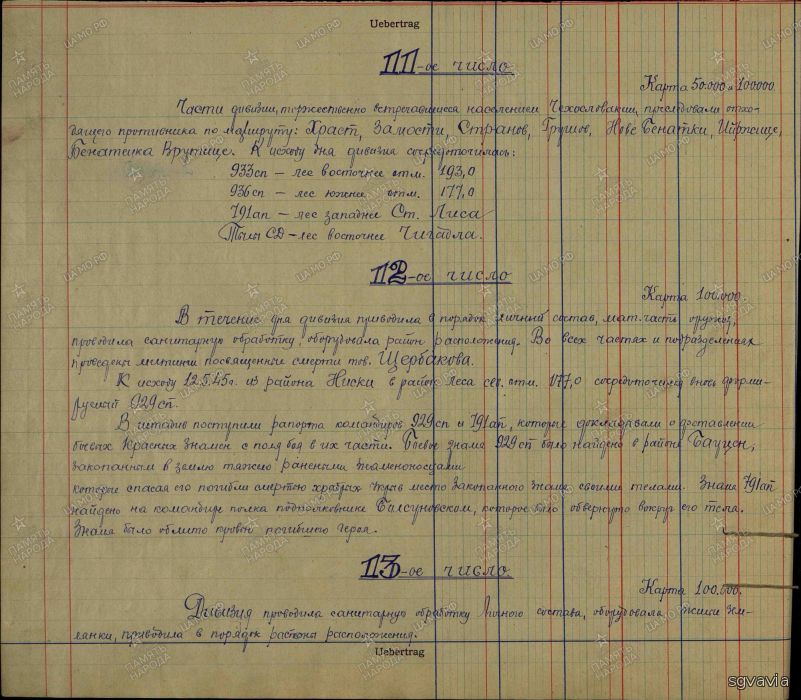 Uebertrag
11-ое число
Карта 50.000 и 100000.
Части дивизии, торжественно встречавшиеся населением Чехословакии, преследовали отхо-
дящего противника по маршруту: Храст, Замости, Странов, Грушов, Нове Бенатки, Йиржице,
Бенатецка Врутице. К исходу дня дивизия сосредоточилась:
933сп – лес восточнее отм. 193,0
936сп – лес южнее отм. 177,0
791ап – лес западнее Ст. Лиса
Тылы СД – лес восточнее Чигадла.
12-ое число
Карта 100.000.
В течение дня дивизия приводила в порядок личный состав, мат.часть оружия,
проводила санитарную обработку, оборудовала район расположения. Во всех частях и подразделениях
проведены митинги посвященные смерти тов. Щербакова.
К исходу 12.5.45г. из района Ниски в район леса сев. отм. 177,0 сосредоточился вновь форми-
руемый 929сп.
В штадив поступили рапорта командиров 929сп и 791ап, которые докладывали о доставлении
боевых Красных Знамен с поля боя в их части. Боевое знамя 929сп было найдено в районе Бауцен,
закопанном в землю тяжело ранеными знаменосцами
которые спасая его погибли смертью храбрых укрыв место закопанного знамя своими телами. Знамя 791ап
найдено на командире полка подполковнике, которое было обвернуто вокруг его тела.
Знамя было облито кровью погибшего героя.
13-ое число
Карта 100.000.
Дивизия проводила санитарную обработку личного состава, оборудовала жилые зем-
лянки, приводила в порядок районы расположения.
Uebertrag
ПАМЯТЬ НАРОДА
ЦАМО.РФ
sgvavia